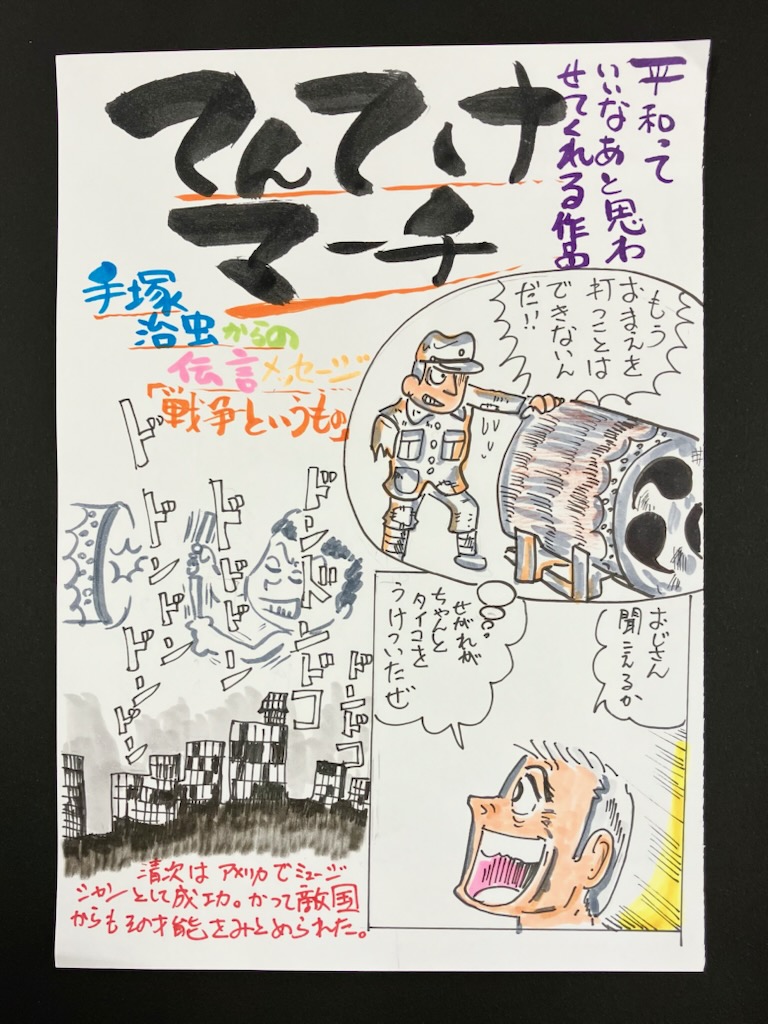 てんてけ
マーチ
平和って
いいなあと思わ
せてくれる作品
手塚
治虫からの
伝言メッセージ
「戦争というもの」
もう
おまえを
打つことは
できないん
だ!!
ド
ドンドン
ドドドン
ドンドンドコ
ドンドン
ドンドコ
おじさん
聞こえるか
せがれが
ちゃんと
タイコを
うけついたぜ
清次はアメリカでミュージ
シャンとして成功。かつて敵国
からもその才能をみとめられた。